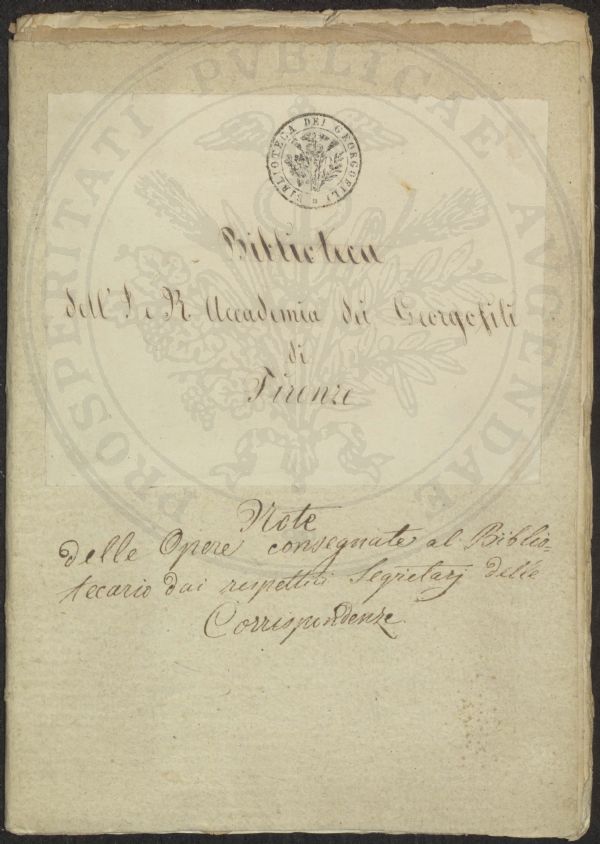 PROSPERITATI PVBLICAE AVGENDAE
BIBLIOTECA DEI GEORGOFILI
Biblioteca
dell' I e R Accademia dei Georgofili
di
Firenze
Note
delle Opere consegnate al Biblio-
tecario dai respettivi Segretarj delle
Corrispondenze.